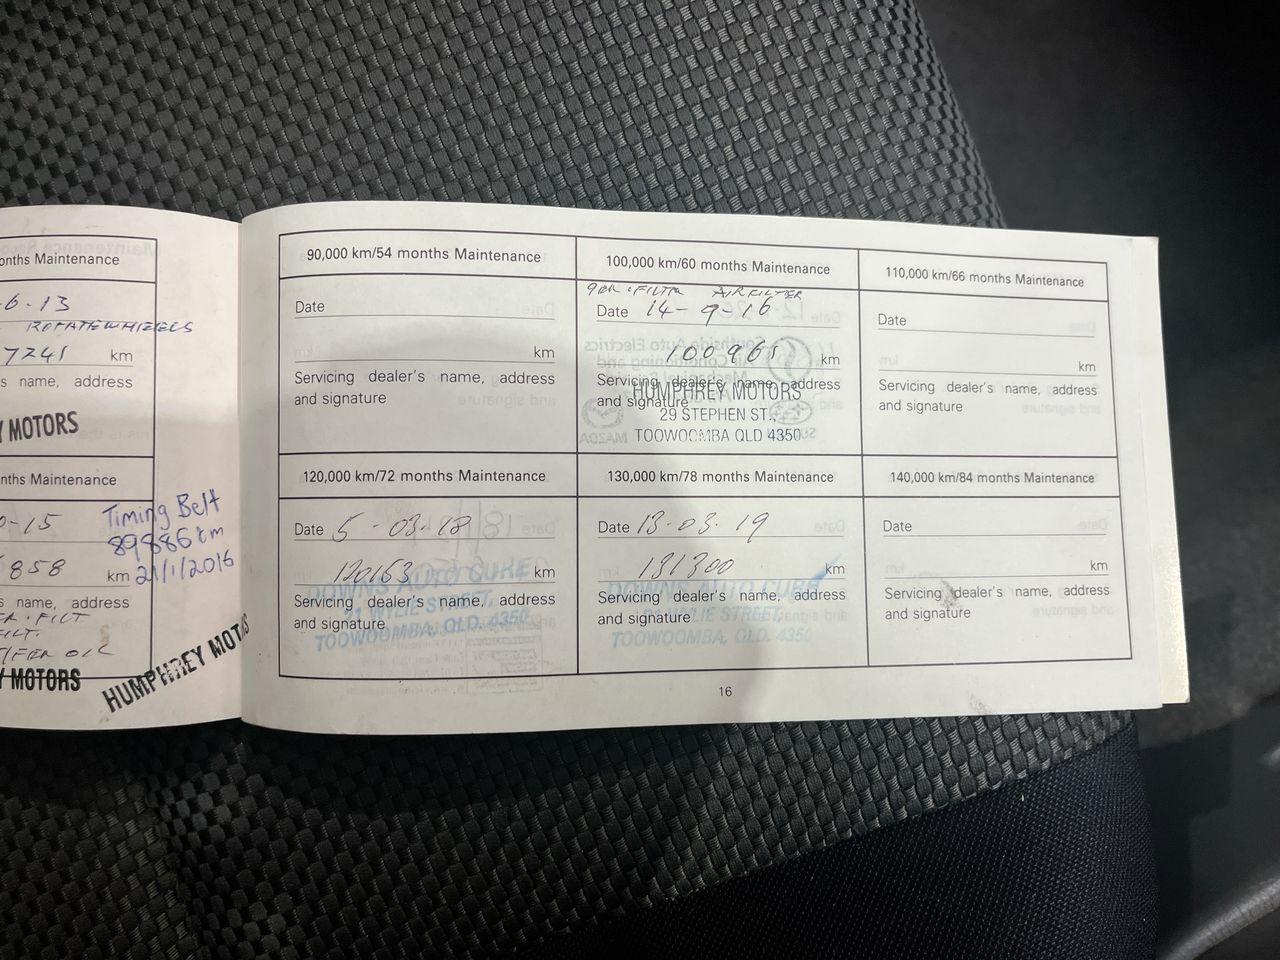 onths Maintenance
6.13
ROTATE WHEELS
7241 km
s name, address
Y MOTORS
nths Maintenance
0-15
858 km
s name, address
FILT
FILT.
OIL
Y MOTORS
Timing Belt
89886 km
21/1/2016
HUMPHREY MOTORS
90,000 km/54 months Maintenance
Date
km
Servicing dealer's name, address
and signature
100,000 km/60 months Maintenance
AIR FILTER
Date 14-9-16
100961 km
Servicing dealer's name, address
and signature
HUMPHREY MOTORS
29 STEPHEN ST.,
TOOWOOMBA QLD 4350
110,000 km/66 months Maintenance
Date
km
Servicing dealer's name, address
and signature
120,000 km/72 months Maintenance
Date 5-03-18
120153 km
Servicing dealer's name, address
and signature
DOWNS AUTO CURE
21 WYLIE STREET,
TOOWOOMBA, QLD. 4350
130,000 km/78 months Maintenance
Date 13-03-19
131300 km
Servicing dealer's name, address
and signature
DOWNS AUTO CURE
21 WYLIE STREET,
TOOWOOMBA, QLD. 4350
140,000 km/84 months Maintenance
Date
km
Servicing dealer's name, address
and signature
16